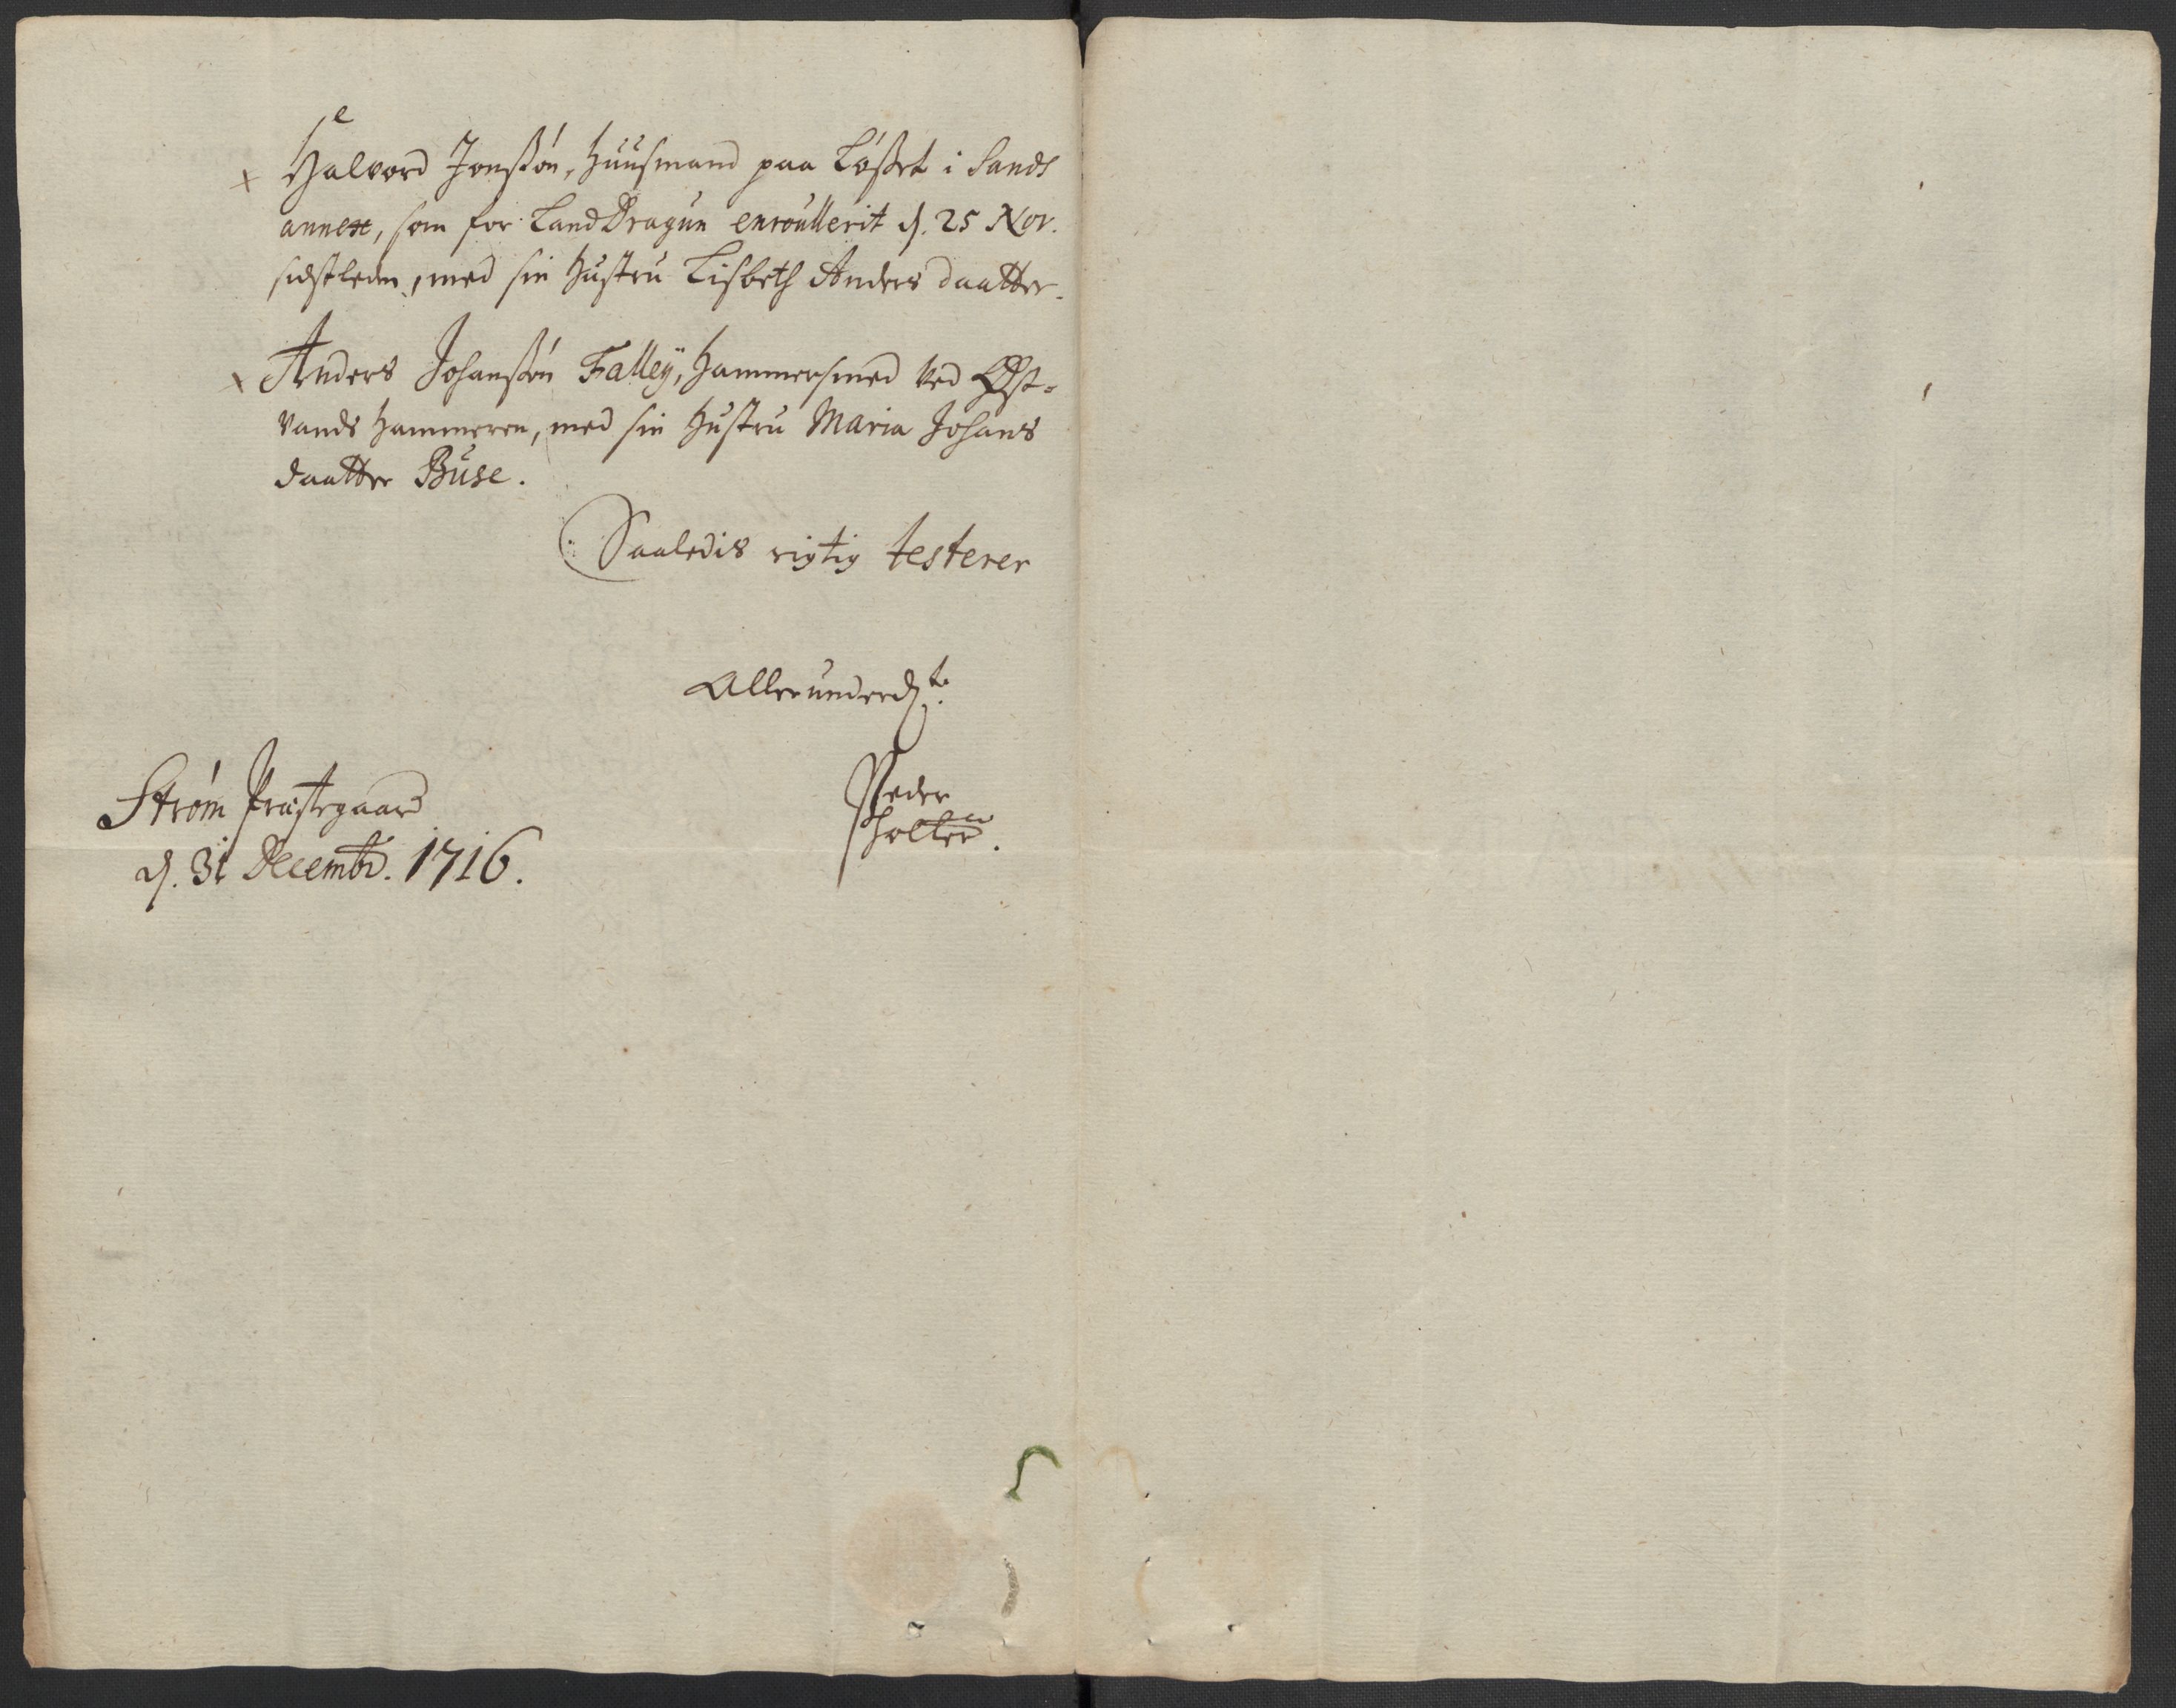 x Halvord Jonssøn, Huusmand paa Løsset i Sands
annex, som for Land Dragun enroullerit d. 25 Nov.
sidstleden, med sin Hustru Lisbeth Anders daatter.
x Anders Johanssøn Falley, Hammersmed ved Øst-
vands Hammeren, med sin Hustru Maria Johans
daatter Buse.
Saaledis rigtig testerer
Allerunderd.ᵗ
Peder
Strøm Præstegaard
d. 31 Decembr. 1716.